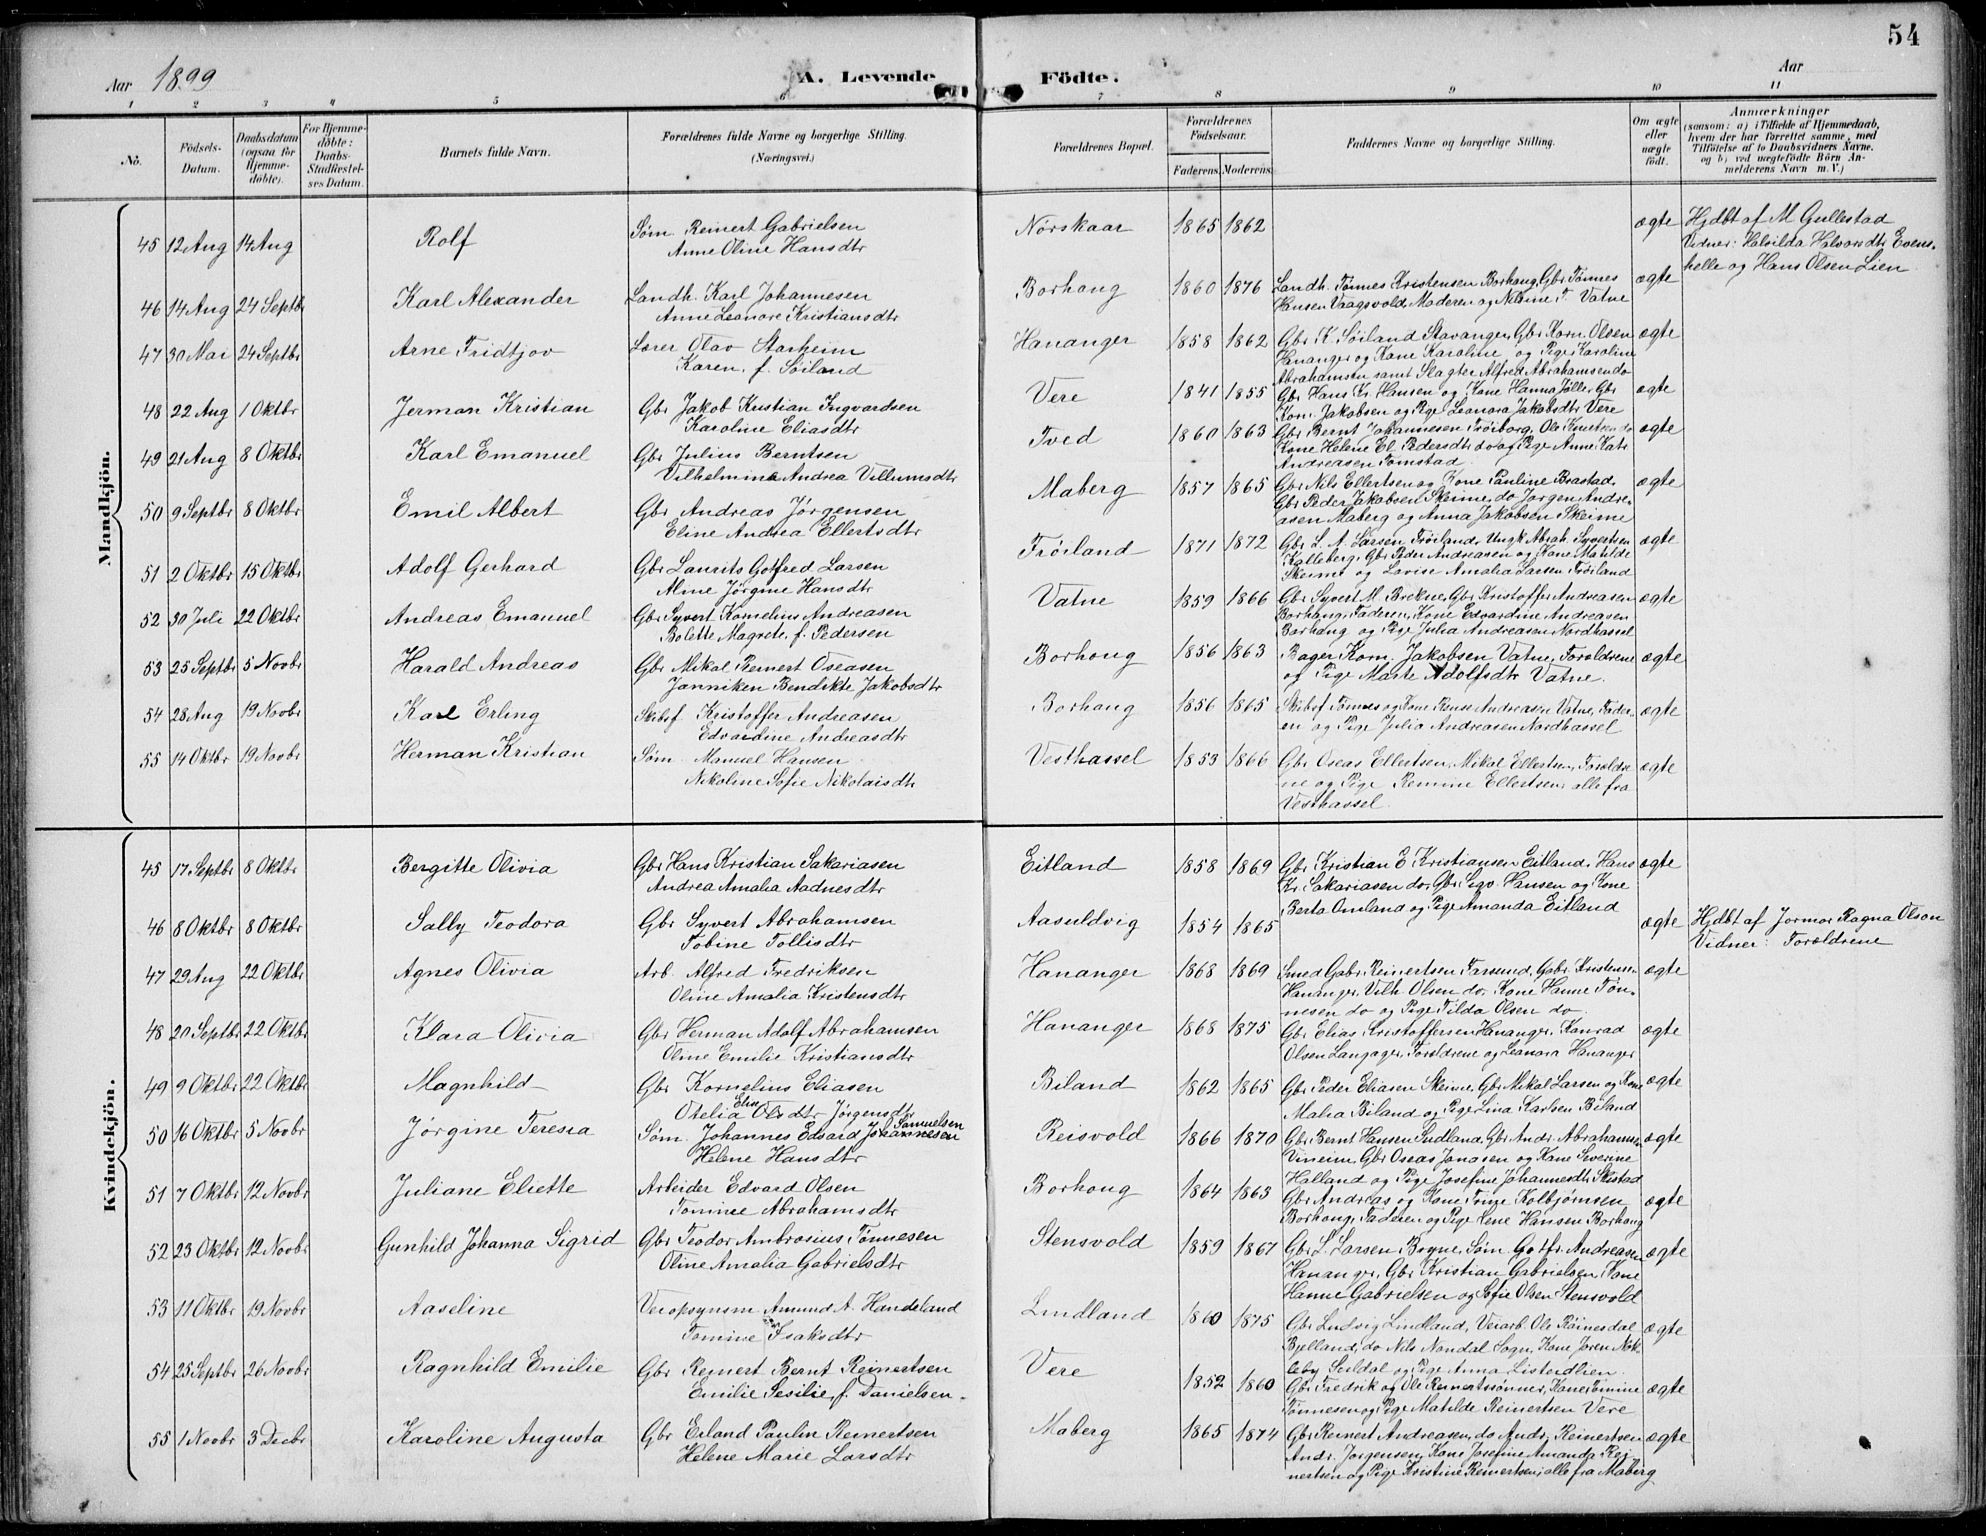 54
Aar 1899
A. Levende
Födte.
Aar
1 2 3 4 5 6 7 8 9 10 11
No.
Födsels-Datum.
Daabsdatum (ogsaa for Hjemme-döbte).
For Hjemme-döbte: Daabs-Stadfæstel-ses Datum.
Barnets fulde Navn.
Forældrenes fulde Navne og borgerlige Stilling. (Næringsvei.)
Forældrenes Bopæl.
Forældrenes Födselsaar.
Faderens. Moderens.
Faddernes Navne og borgerlige Stilling.
Om ægte eller uægte födt.
Anmærkninger
(saasom: a) i Tilfælde af Hjemmedaab, hvem der har forrettet samme, med Tilföielse af to Daabsvidners Navne, og b) ved uægtefödte Börn An-melderens Navn m. V.)
Mandkjön.
45 12 Aug 14 Aug Rolf Søm. Reinert Gabrielsen Nørskaar 1865 1862 ægte Hjdbt af M Gullestad
Anne Oline Hansdtr Vidner: Halvorsdtr Evens-
helle og Hans Olsen Lien
46 14 Aug 24 Septbr Karl Alexander Landh. Karl Johannesen Borhaug 1860 1876 Landh. Tønnes Kristensen Borhaug, Gbr Tønnes ægte
Anne Leanore Kristiansdtr Hansen Vaagsvold, Moderen og Vatne
47 30 Mai 24 Septbr Arne Fridtjov Lærer Olav Starheim Hananger 1858 1862 Gbr K. Søiland Stavanger, Gbr Korn. Olsen ægte
Karen, f. Søiland Hananger og Kone Karoline og Pige Karoline
Abrahamsen samt Slagter Alfred Abrahamsen do
48 22 Aug 1 Oktbr Jerman Kristian Gbr Jakob Kristian Ingvardsen Vere 1841 1855 Gbr Hans Kr. Hansen og Kone Hanna Jølle, Gbr ægte
Karoline Eliasdtr Korn. Jakobsen og Pige Leanora Jakobsdtr Vere
49 21 Aug 8 Oktbr Karl Emanuel Gbr Julius Berntsen Tved 1860 1863 Gbr Bernt Johannesen Frøiborg, Ole Knutsen do ægte
Vilhelmine Andrea Villumsdtr Kone Helene El. Pedersdtr do og Pige Anne Kat.
Andreasen Tomstad
50 9 Septbr 8 Oktbr Emil Albert Gbr Andreas Jørgensen Maberg 1857 1865 Gbr Nils Ellertsen og Kone Pauline Brastad, ægte
Eline Andrea Ellertsdtr Gbr Peder Jakobsen Skeime, do Jørgen Andre-
asen Maberg og Anna Jakobsen Skeime
51 2 Oktbr 15 Oktbr Adolf Gerhard Gbr Laurits Gotfred Larsen Frøiland 1871 1872 Gbr L. A. Larsen Frøiland, Ungk Abrah. Syvertsen ægte
Aline Jørgine Hansdtr Kalleberg, Gbr Peder Andreasen og Kone Matilde
Skeime og Lavise Amalia Larsen Frøiland
52 30 Juli 22 Oktbr Andreas Emanuel Gbr Syvert Kornelius Andreasen Vatne 1859 1866 Gbr Syvert M. Brekne, Gbr Kristoffer Andreasen ægte
Bolette Magrete, f. Pedersen Borhaug, Faderen, Kone Edvardine Andreasen
Borhaug og Pige Julia Andreasen Nordhassel
53 25 Septbr 5 Novbr Harald Andreas Gbr Mikal Reinert Oseasen Borhaug 1856 1863 Bager Korn. Jakobsen Vatne, Forældrene ægte
Janniken Bendikte Jakobsdtr og Pige Marte Adolfsdtr Vatne.
54 28 Aug 19 Novbr Karl Erling Skibsf Kristoffer Andreasen Borhaug 1856 1865 Skibsf Tønnes og Kone Rense Andreasen Vatne, Fader- ægte
Edvardine Andreasdtr en og Pige Julia Andreasen Nordhassel
55 14 Oktbr 19 Novbr Herman Kristian Søm. Manuel Hansen Vesthassel 1853 1866 Gbr Oseas Ellertsen, Mikal Ellertsen, Forældre- ægte
Nikoline Sofie Nikolaisdtr ne og Pige Remine Ellertsen, alle fra
Vesthassel.
Kvindekjön.
45 17 Septbr 8 Oktbr Bergitte Olivia Gbr Hans Kristian Sakariasen Eitland 1858 1869 Gbr Kristian E Kristiansen Eitland, Hans ægte
Andrea Amalia Aadnesdtr Kr. Sakariasen do, Gbr Sigv. Hansen og Kone
Berta Omland og Pige Amanda Eitland
46 8 Oktbr 8 Oktbr Sally Teodora Gbr Syvert Abrahamsen Aasuldvig 1854 1865 ægte Hjdbt af Jormor Ragna Olson
Tobine Tollisdtr Vidner: Forældrene
47 29 Aug 22 Oktbr Agnes Olivia Arb. Alfred Fredriksen Hananger 1868 1869 Smed Gabr. Reinertsen Farsund, Gabr. Kristensen ægte
Oline Amalia Kristensdtr Hananger, Vilh. Olsen do, Kone Hanne Tøn-
nesen do og Pige Tilda Olsen do.
48 20 Septbr 22 Oktbr Klara Olivia Gbr Herman Adolf Abrahamsen Hananger 1868 1875 Gbr Elias Kristoffersen Hananger, Konrad ægte
Oline Emilie Kristiansdtr Olsen Langager, Forældrene og Leanora Hananger
49 9 Oktbr 22 Oktbr Magnhild Gbr Kornelius Eliasen Biland 1862 1865 Gbr Peder Eliasen Skeime, Gbr Mikal Larsen og Kone ægte
Otelia Elise Jørgensdtr Malia Biland og Pige Lina Karlsen Biland
50 16 Oktbr 5 Novbr Jørgine Teresia Søm. Johannes Edvard Samuelsen Johannesen Reisvold 1866 1870 Gbr Bernt Hansen Sudland, Gbr Andr. Abrahamsen ægte
Helene Hansdtr Gbr Oseas Jonasen og Kone Severine
Halland og Pige Josefine Johannesdtr Skistad
51 7 Oktbr 12 Novbr Juliane Eliette Arbeider Edvard Olsen Borhaug 1864 1863 Gbr Andreas og Kone Tonje Kolbjørnsen ægte
Tomine Abrahamsdtr Borhaug, Faderen og Pige Lene Hansen Borhaug
52 23 Oktbr 12 Novbr Gunhild Johanna Sigrid Gbr Teodor Ambrosius Tønnesen Stensvold 1859 1867 Gbr L. Larsen Bryne, Søm. Gotfr. Andreasen ægte
Oline Amalia Gabrielsdtr Hananger, Gbr Kristian Gabrielsen, Kone
Hanne Gabrielsen og Sofie Olsen Stensvold
53 11 Oktbr 19 Novbr Aaseline Veiopsynsm Amund A. Handeland Lindland 1860 1875 Gbr Ludvig Lindland, Veiarb Ole Røinesdal ægte
Tomine Isaksdtr Bjelland, do Nils Nondal Sogn, Kone Jøren Nok-
leby Suldal og Pige Anna
54 25 Septbr 26 Novbr Ragnhild Emilie Gbr Reinert Bernt Reinertsen Vere 1852 1860 Gbr Fredrik og Ole Reinertssønner, Kone Tomine ægte
Emilie Sesilie, f. Danielsen. Tønnesen og Pige Matilde Reinertsen Vere
55 1 Novbr 3 Decbr Karoline Augusta Gbr Erland Paulin Reinertsen Maberg 1865 1874 Gbr Reinert Andreasen, do Andr. Reinertsen ægte
Helene Marie Larsdtr Andr. Jørgensen, Kone Josefine Amanda Rei-
nertsen og Pige Kristine Reinertsen, alle fra Maberg